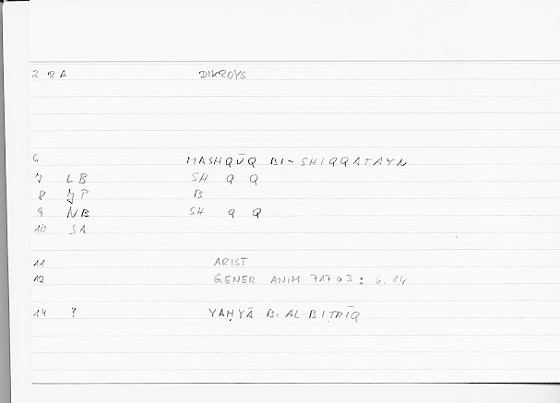 2 RA DIKROYS
6 MASHQŪQ BI-SHIQQATAYN
7 LB SH Q Q
8 JP B
9 NB SH Q Q
10 SA
11 ARIST
12 GENER ANIM 717 a 3 : 6.14
14 ? YAḤYĀ B. AL-BIṬRĪQ